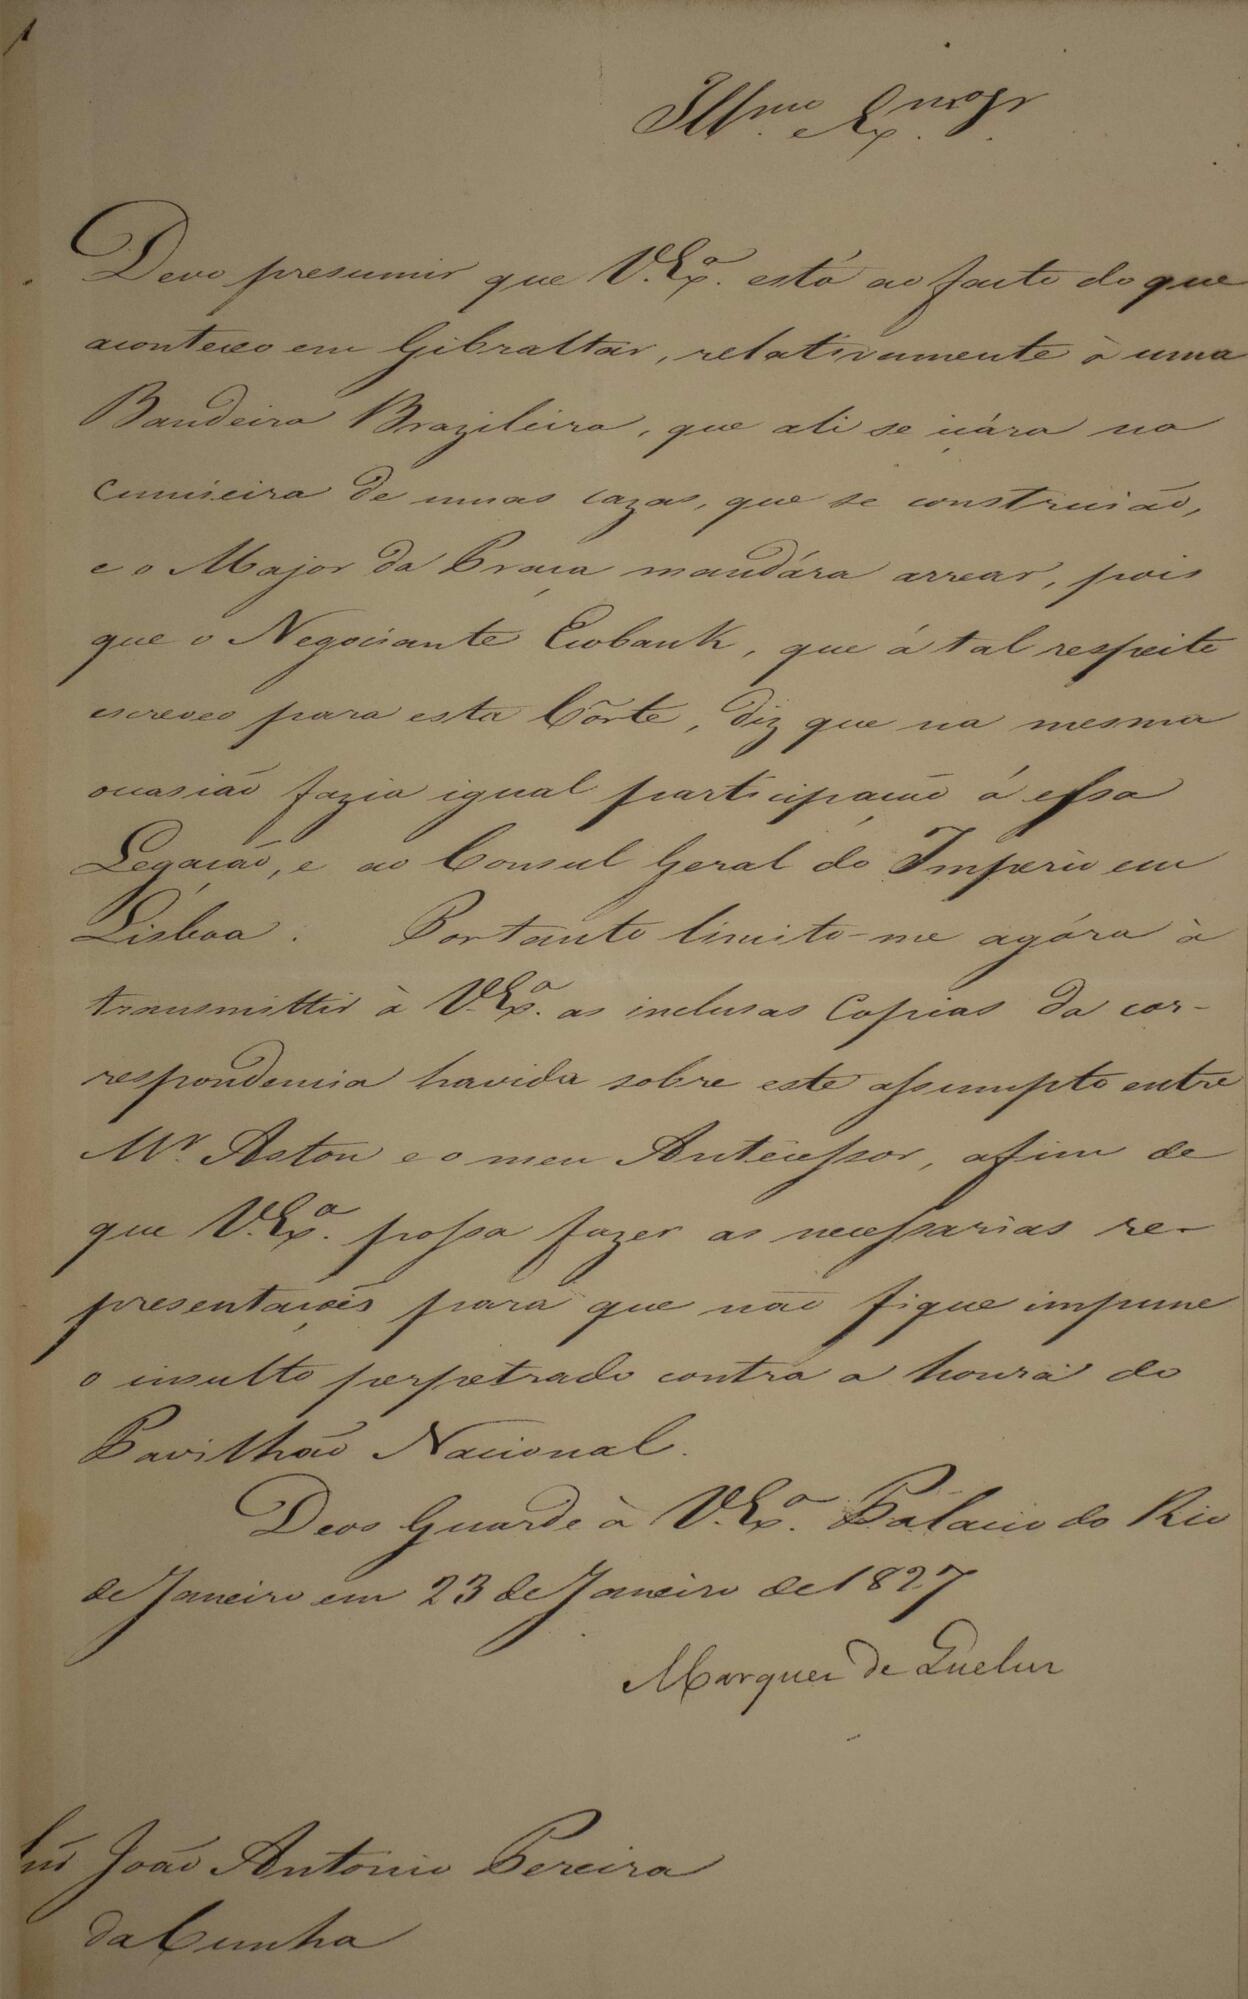 Illmo. e Exmo Sr.
Devo presumir que V. Exa. está ao facto do que
aconteceo em Gibraltar, relativamente à uma
Bandeira Brazileira, que ali se içára na
cumieira de umas cazas, que se construião,
e o Major da Praça mandára arrear, pois
que o Negociante Ewbank, que á tal respeito
escreveo para esta Côrte, diz que na mesma
occasião fazia igual participação á essa
Legação, e ao Consul Geral do Imperio em
Lisboa. Portanto limito-me agóra à
transmittir à V. Exa. as inclusas Copias da cor-
respondencia havida sobre este assumpto entre
Mr. Aston e o meu Antecessor, afim de
que V. Exa. possa fazer as necessarias re-
presentações para que não fique impune
o insulto perpetrado contra a honra do
Pavilhão Nacional.
Deos Guarde à V. Exa. Palacio do Rio
de Janeiro em 23 de Janeiro de 1827
Marquez de Queluz
João Antonio Pereira
da Cunha